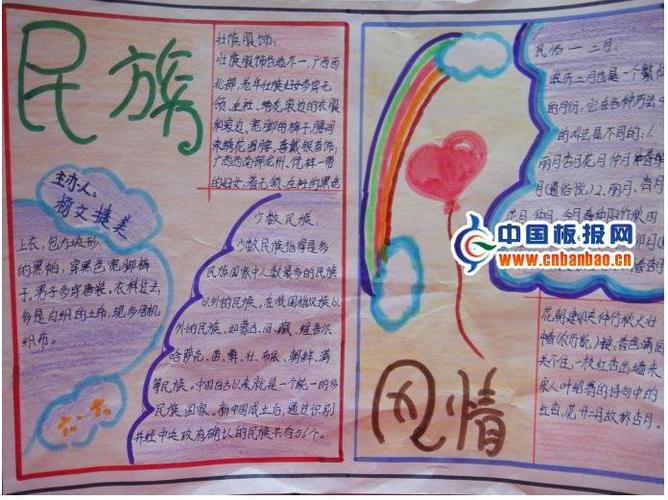 民族
壮族服饰:
壮族服饰各地不一,广西西
北部,老年壮族妇女多穿无
领、左衽、绣花滚边的衣服
和滚边、宽脚的裤子,腰间
束绣花围裙,喜戴银首饰;
广西西南部龙州、凭祥一带
的妇女,着无领、左衽的黑色
主办人:
杨文捷美
上衣,包方块形
的黑帕,穿黑色宽脚裤
子。男子多穿唐装。衣料过去
多是自织的土布,现多用机
织布。
六·六
少数民族:
少数民族指得是多
民族国家中人数最多的民族
以外的民族。在我国指汉族以
外的民族。如蒙古、回、藏、维吾尔
哈萨克、苗、彝、壮、布依、朝鲜、满
等民族。中国自古以来就是一个统一的多
民族国家。新中国成立后,通过识别
并经中央政府确认的民族共有56个。
风情
民俗一二月:
农历二月也是一个繁
的月份,它在各种历法
的叫法是不同的:1.
丽月杏月花月仲月仲春
月(通俗说)2、丽月、
花月、仲月、今月
中国板报网
www.cnbanbao.cn
花朝建卯夹仲竹秋火壮
关不住,一枝红杏出墙来
采人叶绍翁的诗句中的
红杏,花开二月故称杏月。